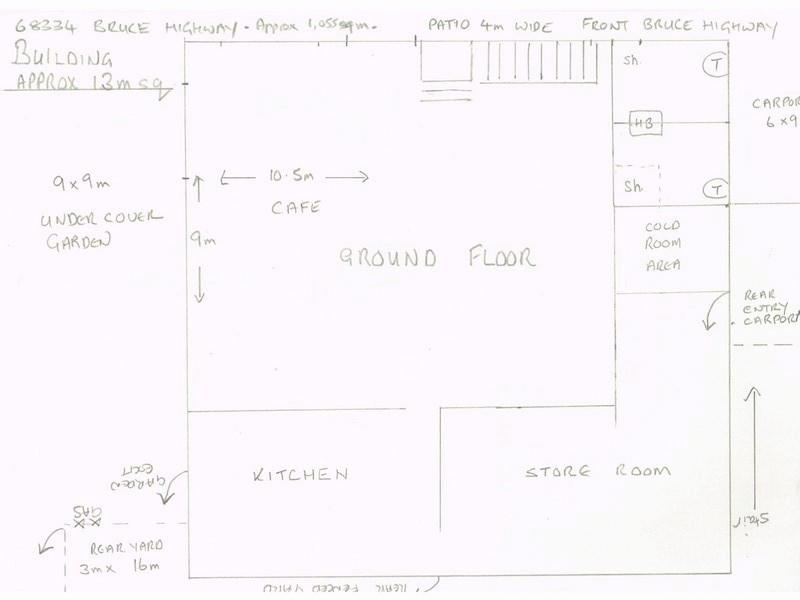 68334 BRUCE HIGHWAY - Approx 1,055sqm.
PATIO 4m WIDE
FRONT BRUCE HIGHWAY
BUILDING
APPROX 13m sq
Sh.
T
CARPOR
6 x 9
HB
9 x 9m
UNDER COVER
GARDEN
10.5m
CAFE
9m
Sh.
T
COLD
ROOM
AREA
GROUND FLOOR
REAR
ENTRY
CARPORT
KITCHEN
STORE ROOM
GARDEN
EXIT
GAS
Stair
REAR YARD
3m x 16m
REAR FENCED YARD